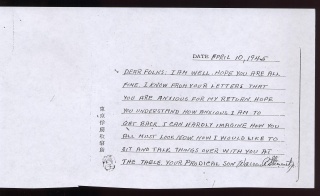 DATE APRIL 10, 1945
DEAR FOLKS. I AM WELL. HOPE YOU ARE ALL
FINE. I KNOW FROM YOUR LETTERS THAT
YOU ARE ANXIOUS FOR MY RETURN. HOPE
YOU UNDERSTAND HOW ANXIOUS I AM TO
GET BACK. I CAN HARDLY IMAGINE HOW YOU
ALL MUST LOOK NOW. HOW I WOULD LIKE TO
SIT AND TALK THINGS OVER WITH YOU AT
THE TABLE. YOUR PRODICAL SON Warren